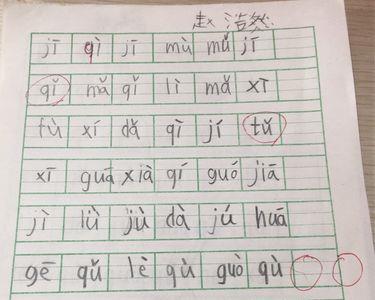 赵浩然
jī qì jī mù mǔ jī
qǐ mǎ qǐ lì mǎ xī
fù xí dǎ qì jí tǔ
xī guā xià qí guó jiā
jì lǜ jù dà jú huā
gē qǔ lè qù guò qù